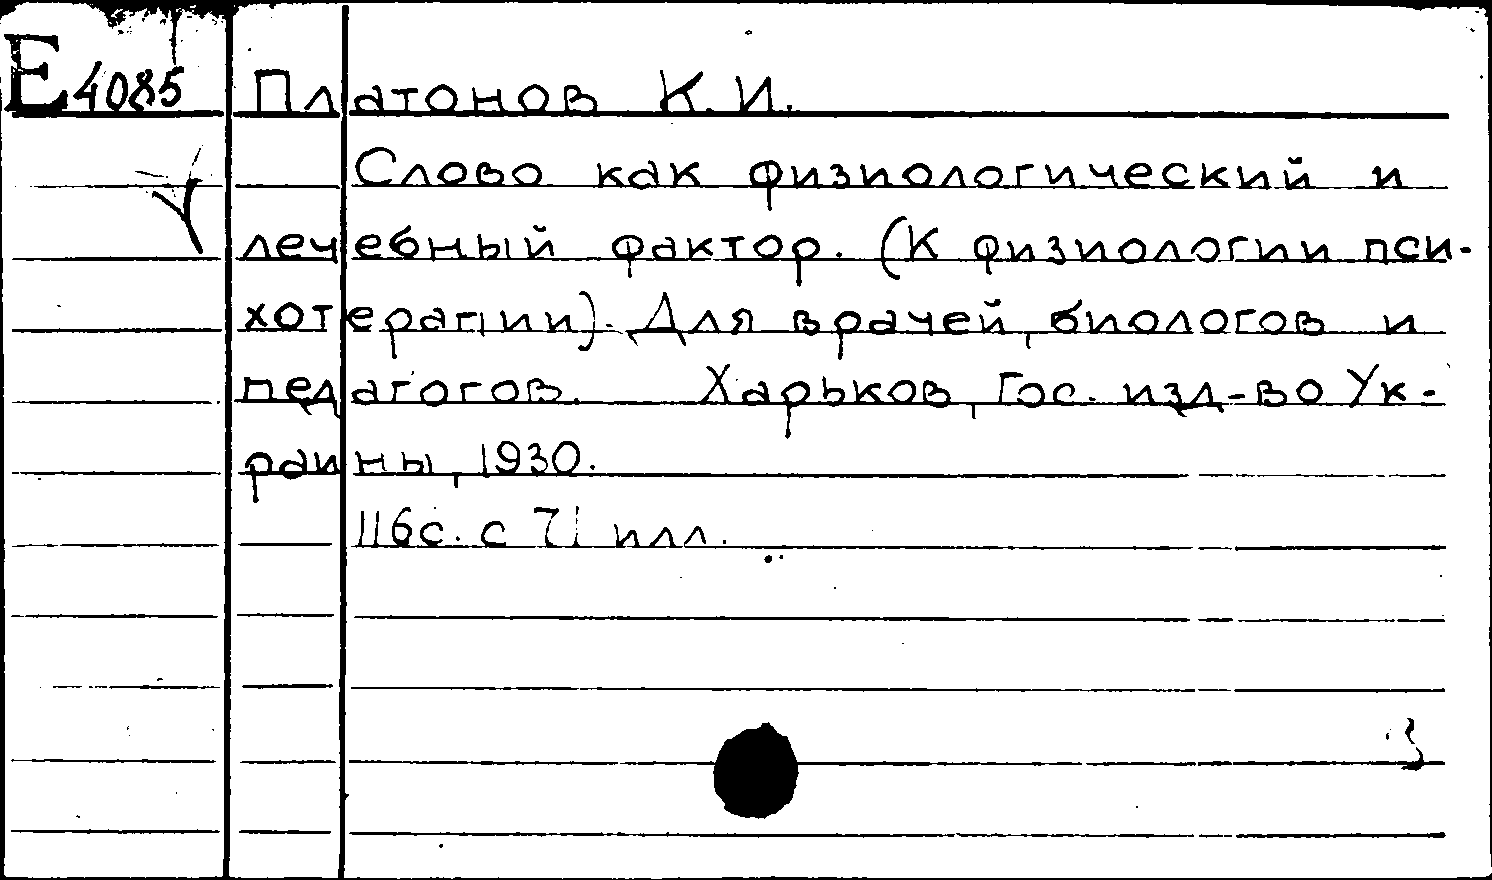 Е 4085 Платонов К. И.
Слово как физиологический и
лечебный фактор. (К физиологии пси-
хотерапии). Для врачей, биологов и
педагогов. Харьков, Гос. изд-во Ук-
раины, 1930.
116с. с 71 илл.